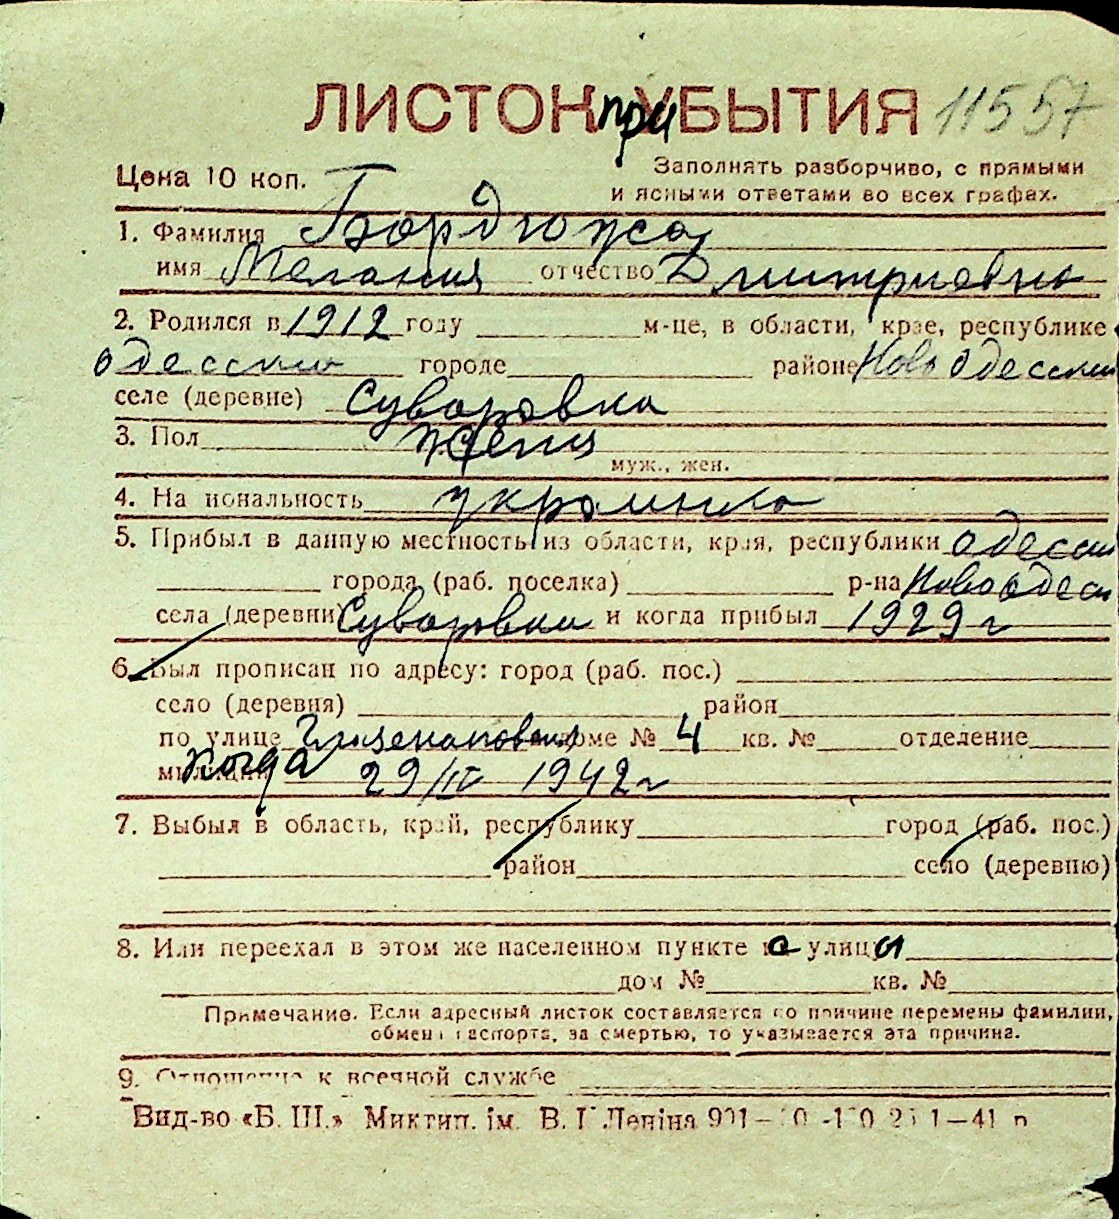 ЛИСТОК при УБЫТИЯ 11557
Цена 10 коп.
Заполнять разборчиво, с прямыми
и ясными ответами во всех графах.
1. Фамилия Бордюжа
имя Мелания отчество Дмитриевна
2. Родился в 1912 году м-це, в области, крае, республике
одесской городе районе Ново Одесский
селе (деревне) Суворовка
3. Пол женщ
муж., жен.
4. Национальность украинка
5. Прибыл в данную местность из области, края, республики одесской
города (раб. поселка) р-на Новоодесс
села (деревни) Суворовки и когда прибыл 1929 г
6. Был прописан по адресу: город (раб. пос.)
село (деревня) район
по улице доме № 4 кв. № отделение
милиции Когда 29/IV 1942 г
7. Выбыл в область, край, республику город (раб. пос.)
район село (деревню)
8. Или переехал в этом же населенном пункте с улицы
дом № кв. №
Примечание. Если адресный листок составляется по причине перемены фамилии,
обмена паспорта, за смертью, то указывается эта причина.
9. Отношение к военной службе
Вид-во «Б. Ш.» Миктип. ім. В. І Леніна